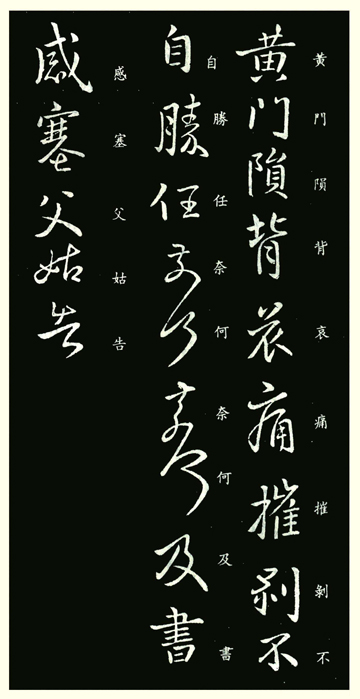 黄门隕背哀痛摧剝不
黄門隕背哀痛摧剝不
自勝任奈何奈何及書
自勝任奈何奈何及書
感塞父姑告
感塞父姑告